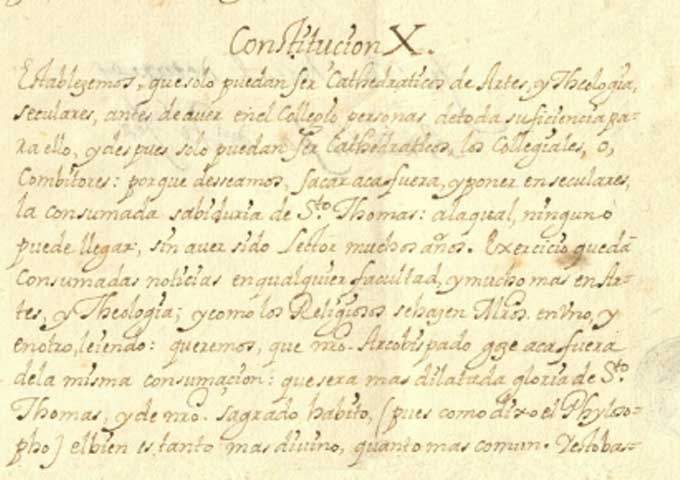 Constitucion X.
Establezemos, que solo puedan ser Cathedraticos de Artes, y Theologia,
seculares, antes de auer en el Collegio personas de toda suficiencia pa-
ra ello, y despues solo puedan ser Cathedraticos, los Collegiales, o,
Combitores: porque desseamos, sacar aca fuera, y poner en seculares,
la consumada sabiduria de S.to Thomas: a la qual, ninguno
puede llegar, sin auer sido Lector muchos años. Exercicio que dà
consumadas noticias en qualquier facultad, y mucho mas en Ar-
tes, y Theologia; y como los Religiosos se hazen Mros. en vno, y
en otro, leiendo: queremos, que nro. Arcobispado goze aca fuera
de la misma consumacion: que sera mas dilatada gloria de S.to
Thomas, y de nro. sagrado habito, (pues como dixo el Phylso-
pho) el bien es tanto mas diuino, quanto mas comun. Y esto bas-